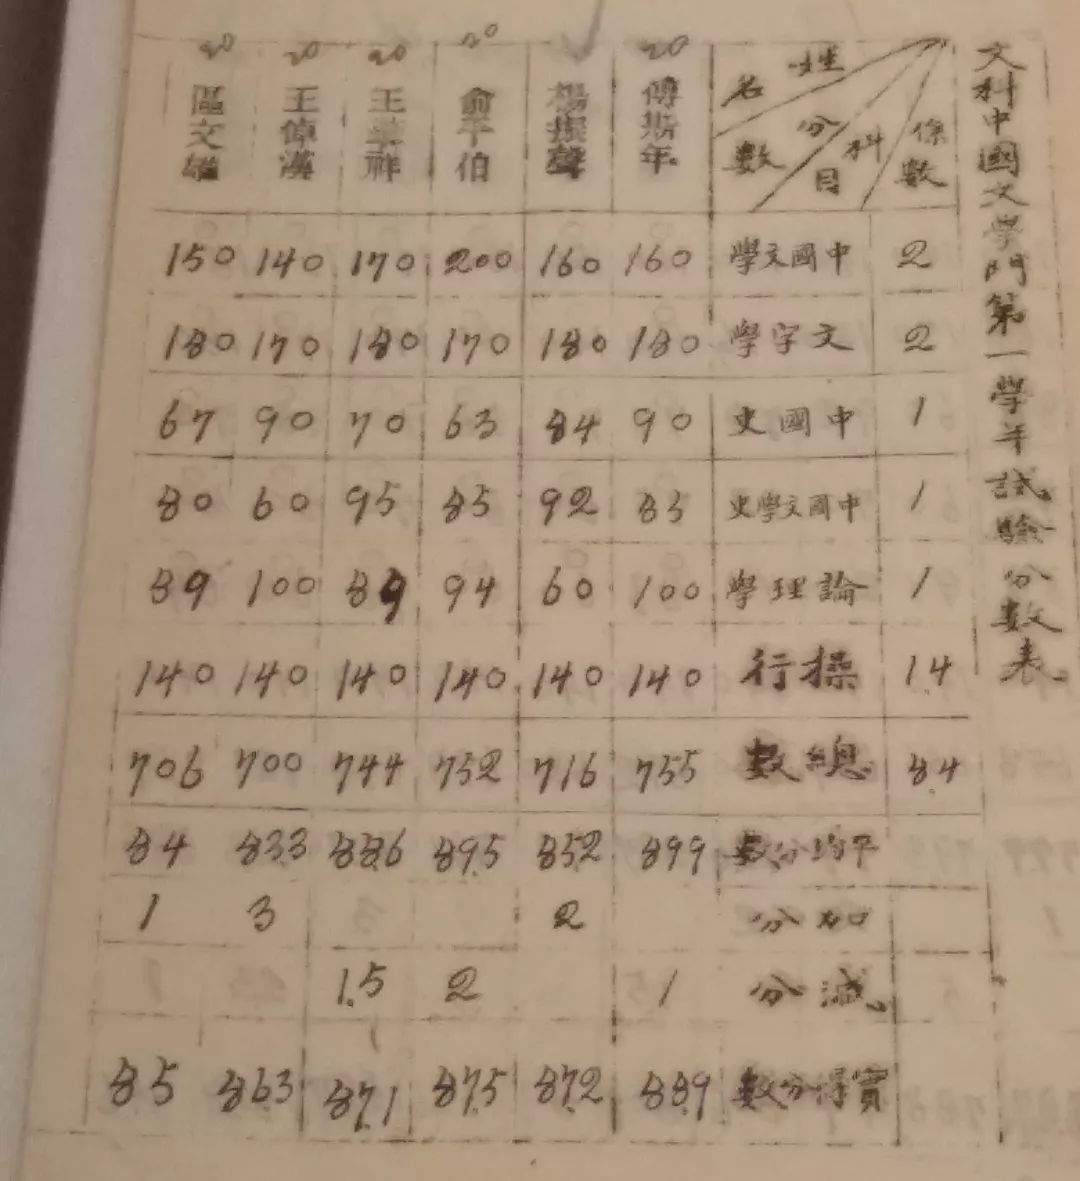 文科中國文學門第一學年試驗分數表
係數 科目 分數 姓名 傅斯年 楊振聲 俞平伯 王肇祥 王倬漢 區文雄
20 20 20 20 20
2 中國文學 160 160 200 170 140 150
2 文字學 180 180 170 180 170 180
1 中國史 90 84 63 70 90 67
1 中國文學史 85 92 85 95 60 80
1 論理學 100 60 94 89 100 89
1.4 操行 140 140 140 140 140 140
8.4 總數 755 716 752 744 700 706
平均分數 89.9 85.2 89.5 88.6 83.3 84
加分 2 3 1
減分 1 2 1.5
實得分數 88.9 87.2 87.5 87.1 86.3 85